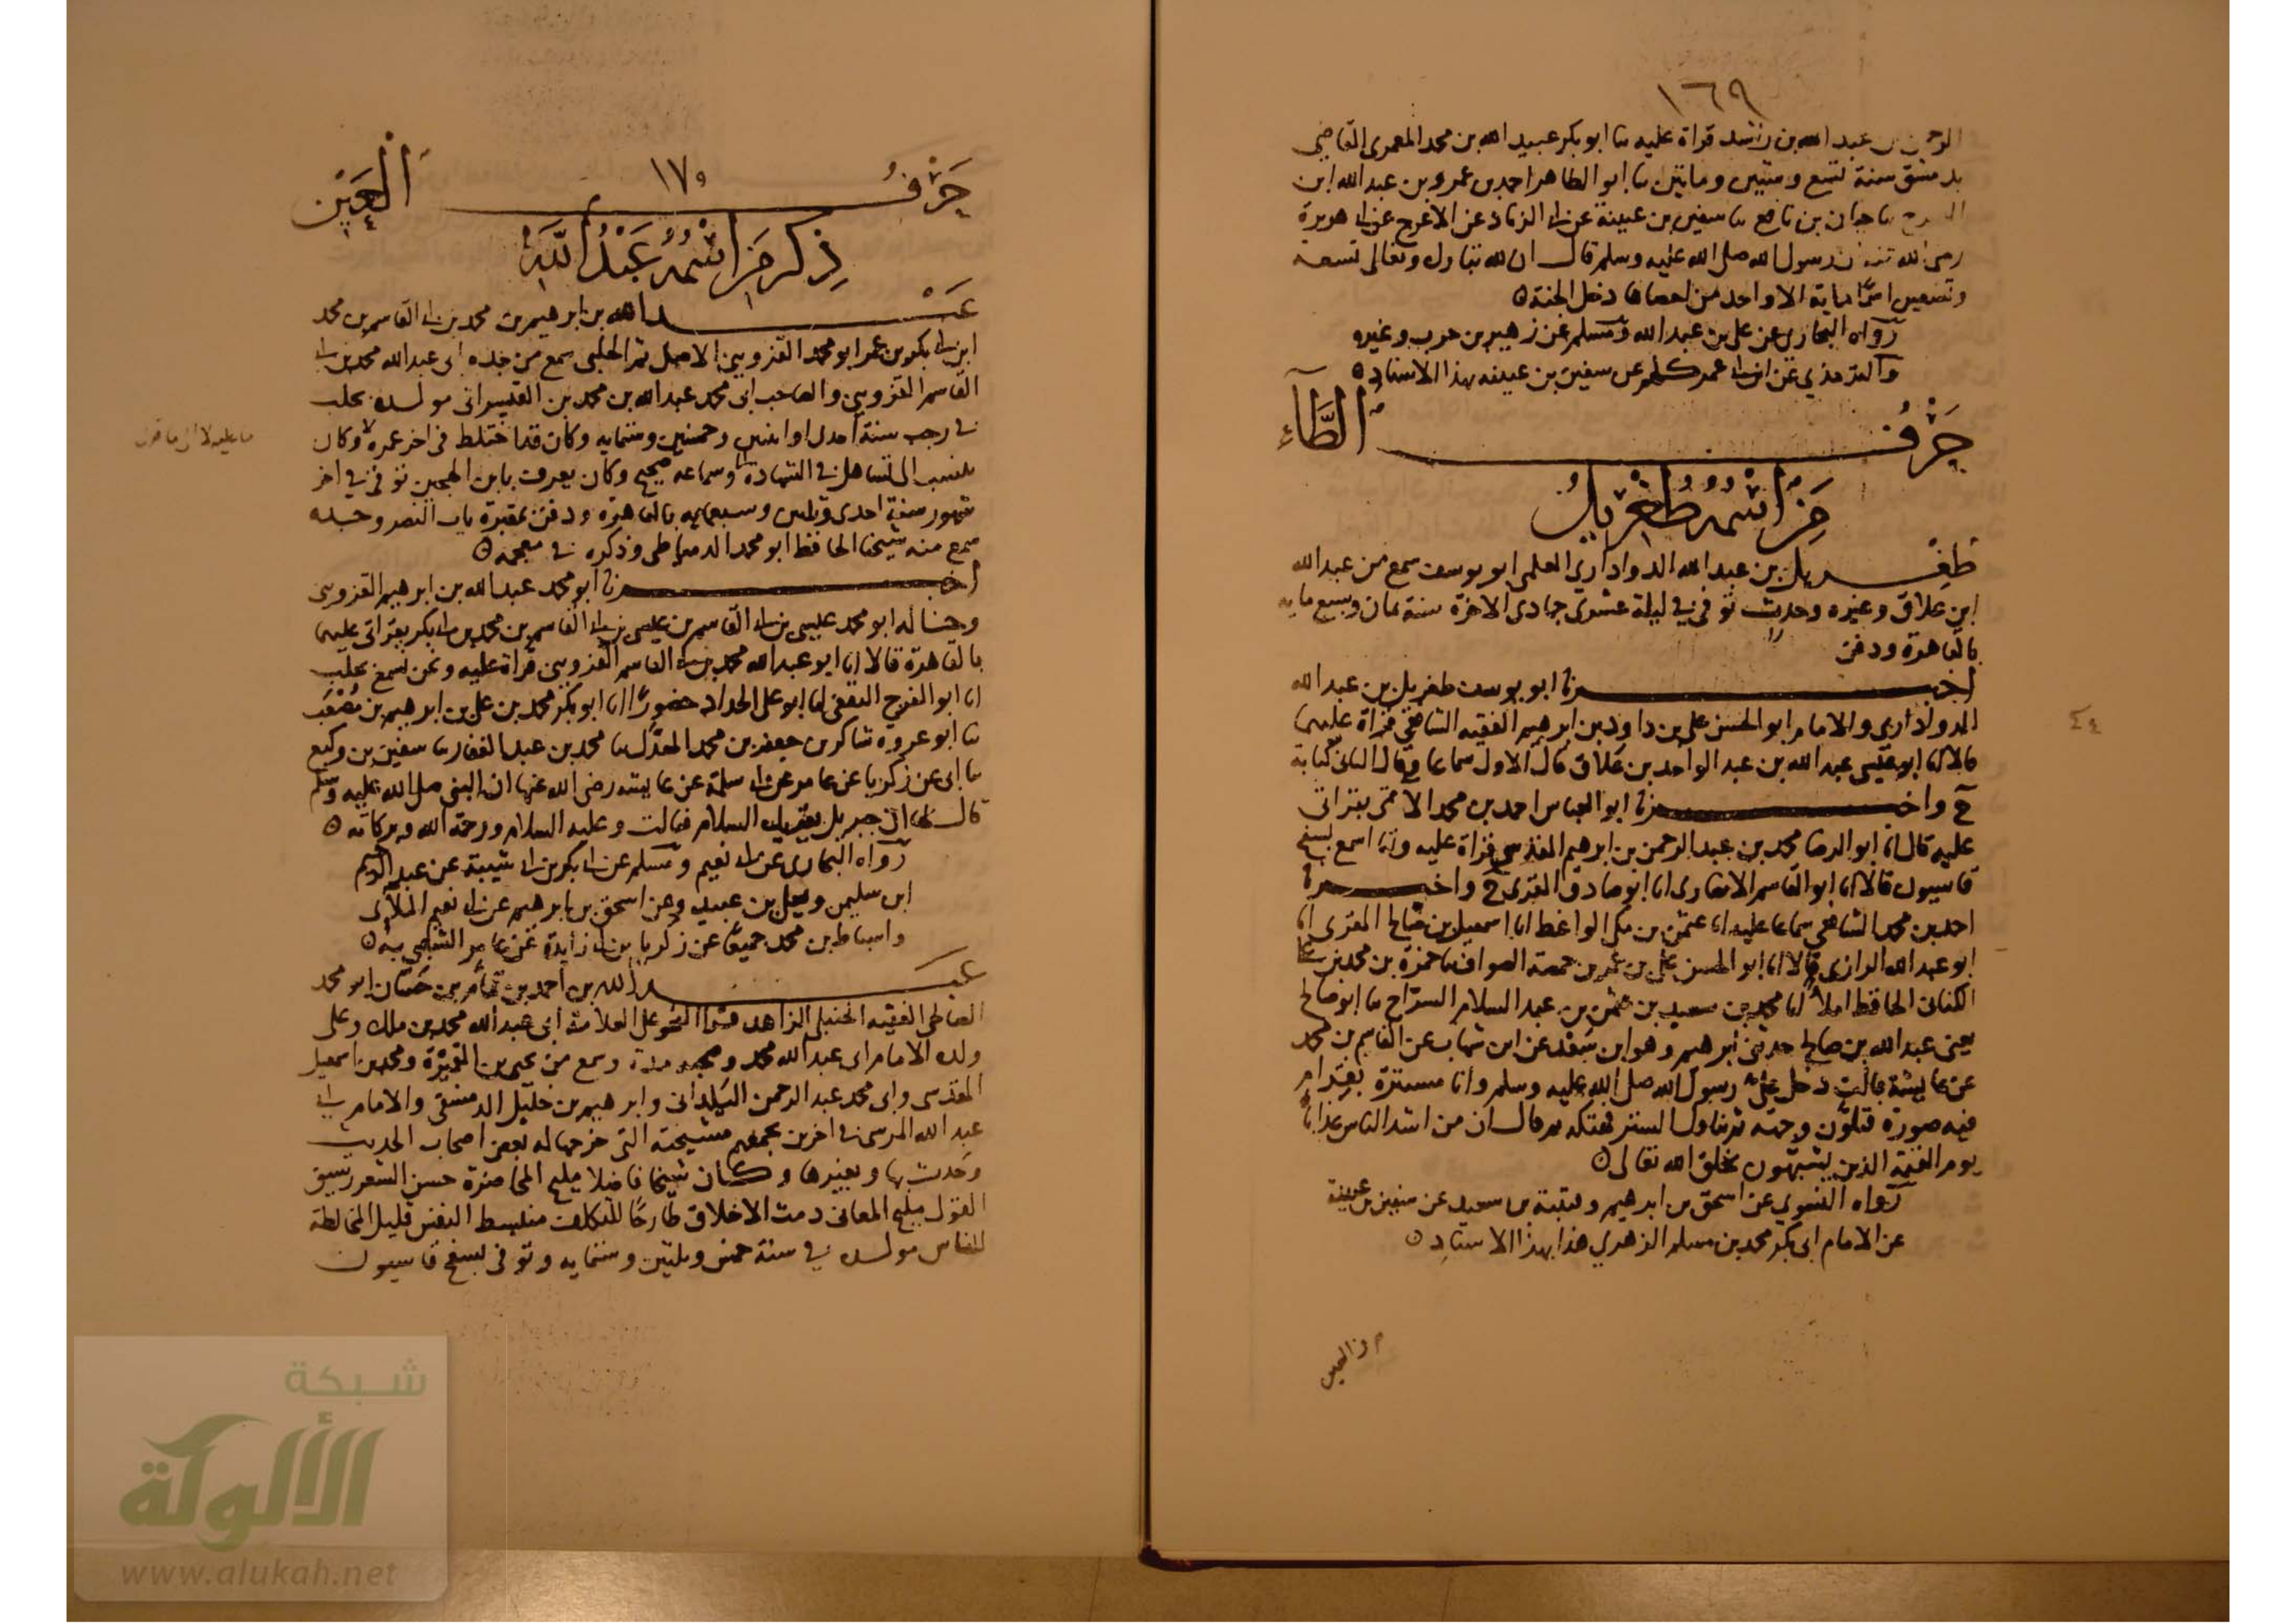 ١٦٩
عبد الله بن راشد قراة عليه ثنا ابو بكر عبيد الله بن محمد العمرى القاضى
بدمشق سنة تسع وستين ومايتين ثنا ابو الطاهر احمد بن عمرو بن عبد الله ابن
ثنا بن نافع ثنا سفين بن عيينة عن ابى الزناد عن الاعرج عن ابى هريرة
رضى الله عنه ان رسول الله صلى الله عليه وسلم قال ان لله تبارك وتعالى تسعة
وتسعين اسما ماية الا واحد من احصاها دخل الجنة ٥
رواه البخارى عن على بن عبد الله ومسلم عن زهير بن حرب وغيره
والترمذي عن ابن ابى عمر كلهم عن سفين بن عيينه بهذا الاسناد ٥
حَرْفُ الطَّآءِ
مَنِ اسْمُهُ طُغْرِيلُ
طغريل بن عبد الله الدواداري العلمى ابو يوسف سمع من عبد الله
ابن علاق وغيره وحدث توفى في ليلة عشرى جمادى الاخرة سنة ثمان وسبع مايه
بالقاهرة ودفن
اخبرنا ابو يوسف طغريل بن عبد الله
الدواداري والامام ابو الحسن على بن داود بن ابرهيم الفقيه الشافعى قراة عليهما
قالا انا ابو عيسى عبد الله بن عبد الواحد بن علاق قال الاول سماعا وقال الثانى كتابة
ح واخبرنا ابو العباس احمد بن محمد بقراتى
عليه قال انا ابو الرضا محمد بن عبد الرحمن بن ابرهيم المقدسى قراة عليه وانا اسمع بسفح
قاسيون قالا انا ابو القاسم الانصارى انا ابو صادق المقرى ح واخبرنا
احمد بن محمد الشافعى سماعا عليه انا عثمن بن مكى الواعظ انا اسمعيل بن صالح المقرى انا
ابو عبد الله الرازى قالا انا ابو الحسن على بن عمر بن حمصة الصواف ثنا حمزة بن محمد بن على
الكنانى الحافظ املاء انا محمد بن سعيد بن عثمن بن عبد السلام السرّاج ثنا ابو صالح
يعنى عبد الله بن صالح حدثنى ابرهيم وهو ابن سَعْد عن ابن شهاب عن القاسم بن محمد
عن عايشة قالت دخل علىّ رسول الله صلى الله عليه وسلم وانا مستترة بقرام
فيه صورة فتلوّن وجهه ثم تناول الستر فهتكه ثم قال ان من اشد الناس عذابا
يوم القيمة الذين يشبّهون بخلق الله تعالى ٥
رواه النسوي عن اسحق بن ابرهيم وقتيبة بن سعيد عن سفين بن عيينة
عن الامام ابى بكر محمد بن مسلم الزهري هذا بهذا الاسناد ٥
١٧٠
حَرْفُ الْعَيْن
ذِكر مَنِ اسْمُهُ عَبْدُ اللهِ
عبد الله بن ابرهيم بن محمد بن ابى القاسم بن محمد
ابن ابى بكر بن عمر ابو محمد القزوينى الاصل ثم الحلبى سمع من جده ابى عبد الله محمد بن ابى
القاسم القزوينى والصاحب ابى محمد عبد الله بن محمد بن القيسرانى مولده بحلب
في رجب سنة احدى او اثنين وخمسين وستمايه وكان قد اختلط فى اخر عمره وكان
ينسب الى تساهل في الشهادة وسماعه صحيح وكان يعرف بابن توفى في اخر
شهور سنة احدى وثلثين وسبعمايه بالقاهرة ودفن بمقبرة باب النصر
سمع منه شيخنا الحافظ ابو محمد الدمياطى وذكره في معجمه ٥
اخبرنا ابو محمد عبد الله بن ابرهيم القزوينى
ابو محمد عيسى بن ابى القاسم بن عيسى بن ابى القاسم بن محمد بن ابى بكر بقراتى عليهما
بالقاهرة قالا انا ابو عبد الله محمد بن ابى القاسم القزوينى قراة عليه ونحن نسمع بحلب
انا ابو الفرج الثقفى انا ابو على الحداد حضورًا انا ابو بكر محمد بن على بن ابرهيم بن مُصْعَب
ثنا ابو عروة شاكر بن جعفر بن محمد المعدّل ثنا محمد بن عبد الغفار ثنا سفين بن وكيع
ثنا ابى عن زكريا عن عامر عن ابى سلمة عن عايشه رضى الله عنها ان النبى صلى الله عليه وسلم
قال لها ان جبريل يقريك السلام فقالت وعليه السلام ورحمة الله وبركاته ٥
رواه البخارى عن ابى نعيم ومسلم عن ابى بكر بن ابى شيبة عن عبد الرحيم
ابن سليمن ويعلى بن عبيد وعن اسحق بن ابرهيم عن ابى نعيم الملآى
واسباط بن محمد جميعًا عن زكريا بن ابى زايدة عن عامر الشعبى به ٥
عبد الله بن احمد بن تمّام بن حَسّان ابو محمد
الصالحى الفقيه الحنبلى الزاهد قرا النحو على العلامة ابى عبد الله محمد بن ملك وعلى
ولده الامام ابى عبد الله محمد وصحبه مدة وسمع من يحيى بن القميرة ومحمد بن اسمعيل
المقدسى وابى محمد عبد الرحمن البلدانى وابرهيم بن خليل الدمشقى والامام ابى
عبد الله المرسى في اخرين يجمعهم مشيخته التى خرجها له بعض اصحاب الحديث
وحدث بها وبغيرها وكان شيخا فاضلا مليح المحاضرة حسن الشعر رشيق
القول مليح المعانى دمث الاخلاق طارحًا للتكلف منبسط النفس قليل المخالطة
للناس مولده في سنة خمس وثلثين وستمايه وتوفى بسفح قاسيون
شبكة
الألوكة
www.alukah.net